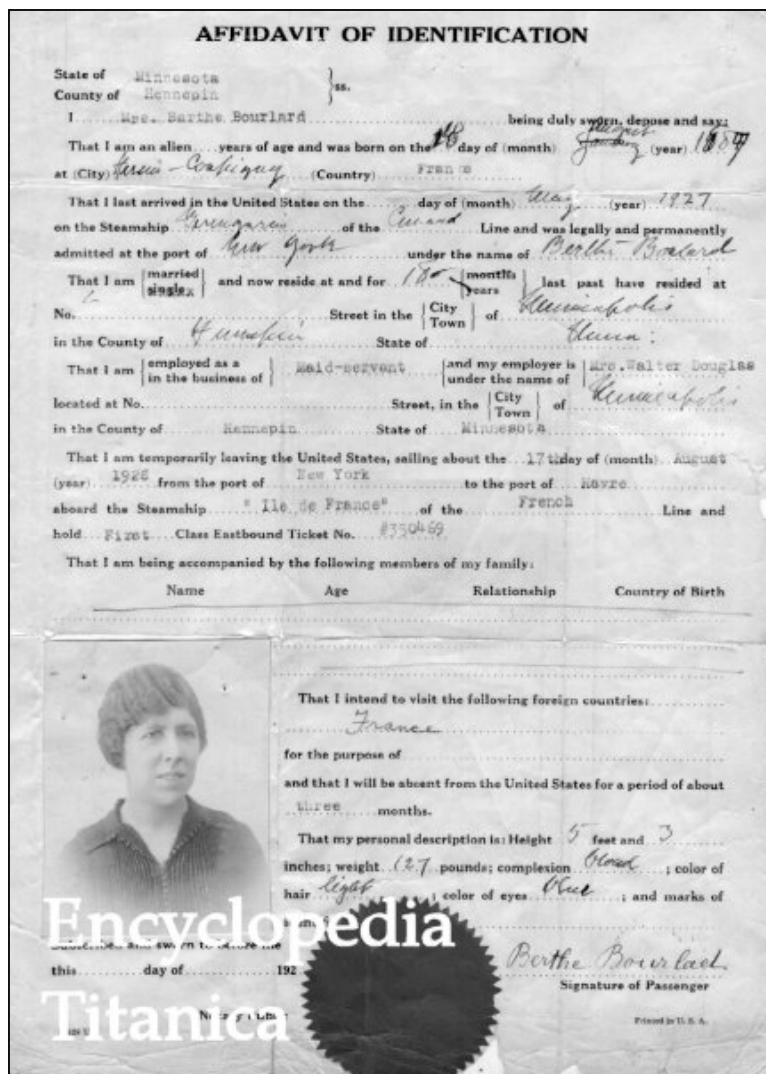 AFFIDAVIT OF IDENTIFICATION
State of Minnesota
County of Hennepin } ss.
I Mrs. Berthe Bourlard being duly sworn, depose and say:
That I am an alien years of age and was born on the 18 day of (month) August (year)
at (City) (Country) France
That I last arrived in the United States on the day of (month) May (year) 1927
on the Steamship Berengaria of the Cunard Line and was legally and permanently
admitted at the port of New York under the name of
That I am { married single } and now reside at and for { months years } last past have resided at
No. Street in the { City Town } of Minneapolis
in the County of Hennepin State of Minn:
That I am { employed as a in the business of } Maid-servant { and my employer is under the name of } Mrs. Walter Douglas
located at No. Street, in the { City Town } of Minneapolis
in the County of Hennepin State of Minnesota
That I am temporarily leaving the United States, sailing about the 17th day of (month) August
(year) 1928 from the port of New York to the port of Havre
aboard the Steamship "Ile de France" of the French Line and
hold First Class Eastbound Ticket No. #350469
That I am being accompanied by the following members of my family:
Name Age Relationship Country of Birth
That I intend to visit the following foreign countries:
France
for the purpose of
and that I will be absent from the United States for a period of about
three months.
That my personal description is: Height 5 feet and 3
inches; weight 127 pounds; complexion blond ; color of
hair light ; color of eyes blue ; and marks of
Encyclopedia
Subscribed and sworn to before me
this day of 192
Berthe Bourlard
Signature of Passenger
Titanica
Notary Public
Printed in U. S. A.